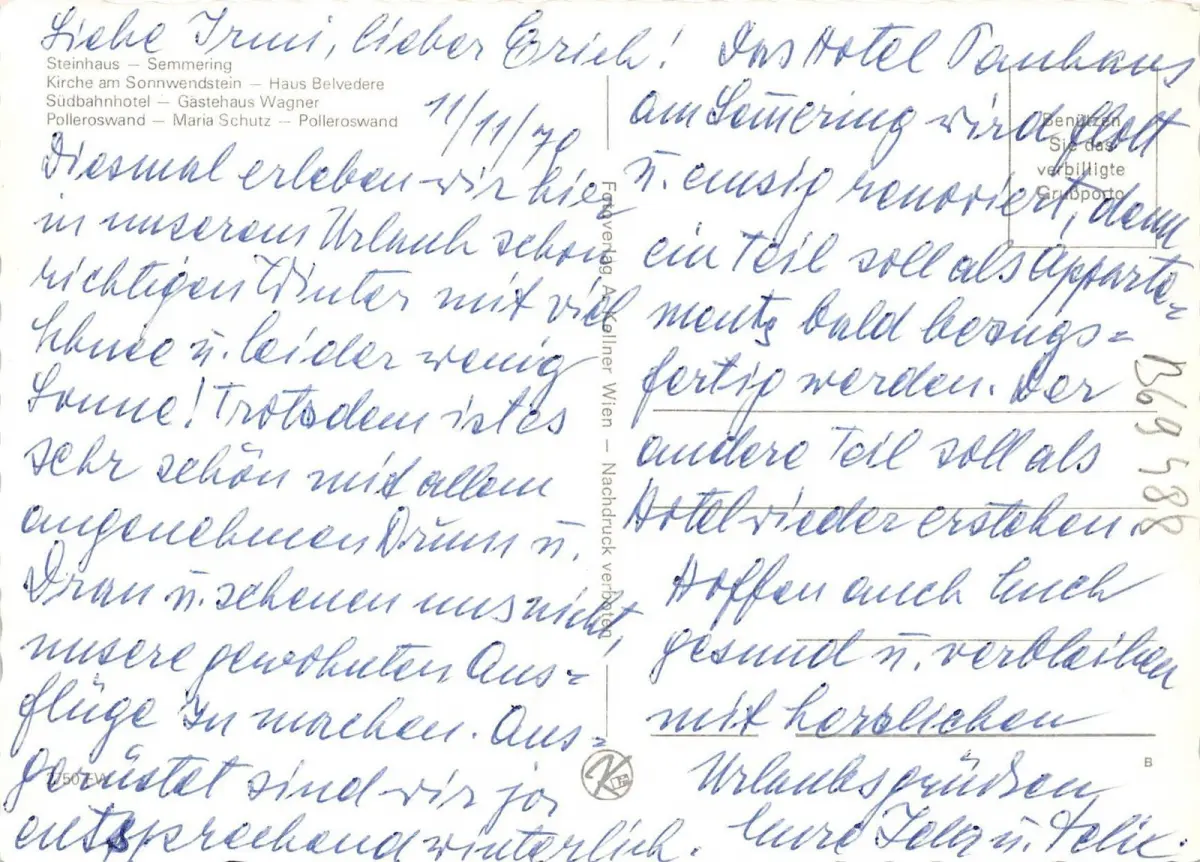 Liebe Irmi, lieber Erich!
Steinhaus — Semmering
Kirche am Sonnwendstein — Haus Belvedere
Südbahnhotel — Gästehaus Wagner
Polleroswand — Maria Schutz — Polleroswand
11/11/70
Diesmal erleben wir hier
in unserem Urlaub schon
richtigen Winter mit viel
Schnee u. leider wenig
Sonne! Trotzdem ist es
sehr schön mit allem
angenehmen Drum u.
Dran u. scheuen uns nicht,
unsere gewohnten Aus=
flüge zu machen. Aus=
gerüstet sind wir ja
entsprechend winterlich.
Das Hotel Panhans
am Semmering wird flott
u. emsig renoviert, denn
ein Teil soll als Apparte=
ments bald bezugs=
fertig werden. Der
andere Teil soll als
Hotel wieder erstehen.
Hoffen auch Euch
gesund u. verbleiben
mit herzlichen
Urlaubsgrüßen
Eure Ida u. Felix.
Benützen
Sie das
verbilligte
Grußporto
Fotoverlag A. Kellner Wien — Nachdruck verboten
B69488
K
B